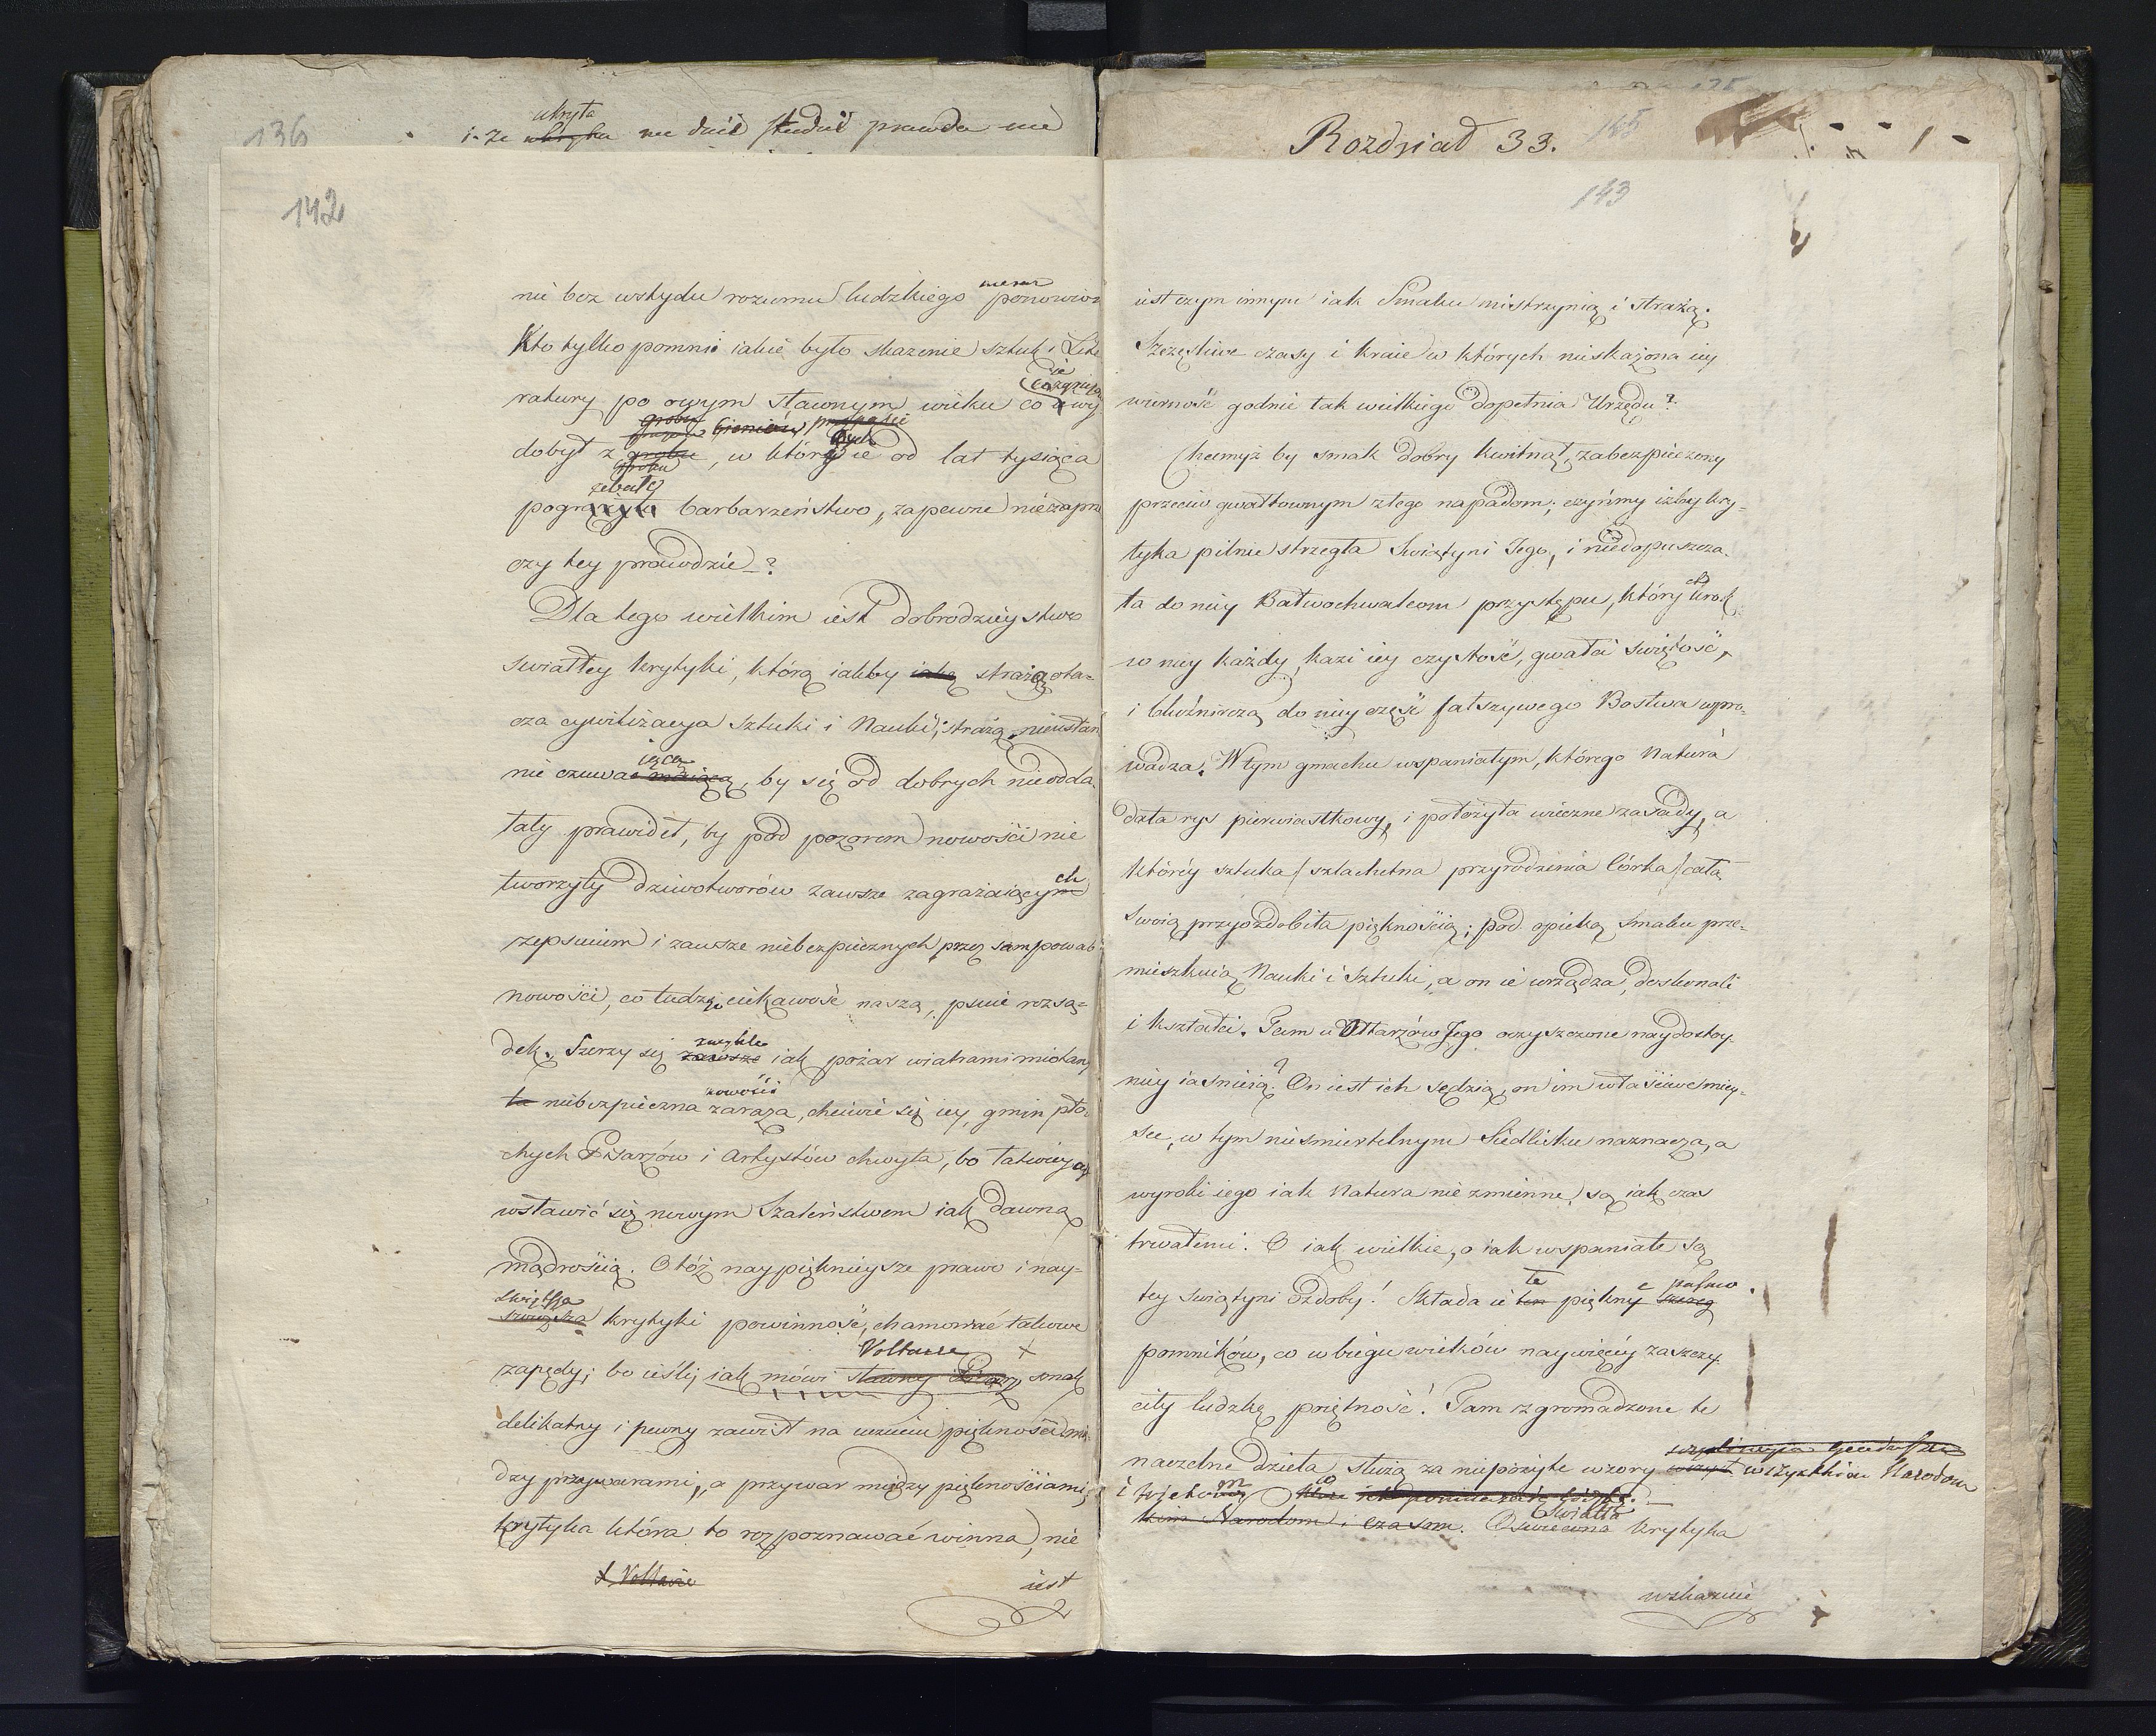 136
ukryta
nie dość prawda nie
142
nie bez wstydu rozumu ludzkiego
Kto tylko pomni iakie było skażenie sztuk i Lite
ratury po owym sławnym wieku co
dobył z , w który ie od lat tysiąca
barbarzeństwo, zapewne niezaprze
czy tey prawdzie?
Dla tego wielkim iest dobrodzieystwo
swiatłey krytyki, którą iakby iaką strażą ota=
cza cywilizacya Sztuki i Nauki; strażą nieustan
iącą
nie czuwać maiącą, by się od dobrych nieodda=
lały prawideł, by pod pozorem nowości nie
ch
tworzyły dziwotworów zawsze zagrażaiącym
zepsuciem i zawsze niebezpiecznych przez sam powab
nowości, co łudząc ciekawość naszą, psuie rozsą=
zwykle
dek. Szerzy się zawsze iak pożar wiatrami miotany
nowości
ta niebezpieczna zaraza, chciwie się iey, gmin pło=
chych Pisarzów i Artystów chwyta, bo łatwiey
wsławić się nowym Szaleństwem iak dawną
mądrością. Otóż naypięknieysze prawo i nay=
świętsza
krytyki powinność, chamować takowe
Voltaire +
zapędy; bo ieśli, iak mówi sławny Pisarz, smak
delikatny i pewny zawisł na uczuciu piękności mię
dzy przywarami, a przywar między pięknościami,
krytyka która to rozpoznawać winna, nie
+ Voltaire
iest
Rozdział 33.
145
143
iest czym innym iak Smaku mistrzynią i strażą.
Szczęśliwe czasy i kraie w których nieskażona iey
wierność godnie tak wielkiego dopełnia Urzędu?
Chcemyż by smak dobry kwitnął, zabezpieczony
przeciw gwałtownym złego napadom; czyńmy iżby kry=
tyka pilnie strzegła Swiątyni Jego, i niedopuszcza=
ła do niey Bałwochwalcom przystępu, który
w niey każdy, kazi iey czystość, gwałci swiętość,
i bluźnierczą do niey cześć fałszywego Bostwa wpro=
wadza. W tym gmachu wspaniałym, którego Natura
dała rys pierwiastkowy, i położyła wieczne zasady, a
któréy sztuka / szlachetna przyrodzenia Córka / całą
swoią przyozdobiła pięknością; pod opieką smaku prze=
mieszkuią Nauki i Sztuki, a on ie urządza, doskonali
i kształci. Tam u Ołtarzów Jego oczyszczone naydostoy=
niey iaśnieią? On iest ich sędzią, on im właściwe miey=
sce, w tym nieśmiertelnym Siedlisku naznacza, a
wyroki iego iak Natura nie zmienne, są iak czas
trwałemi. O iak wielkie, o iak wspaniałe są
te e pasmo
tey swiątyni Ozdoby! Składa ie ten piękny szereg
pomników, co w biegu wieków naywięcéy zaszczy=
ciły ludzkę ! Tam zgromadzone te
naczelne dzieła służą za niepożyte wzory wszystkim Narodom
i wiekom
kim Narodom i czasom. światła
Oswiecona krytyka
wskazuie